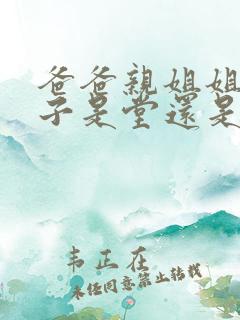 爸爸親姐姐
子是堂還是
韦正在
未经同意禁止转载